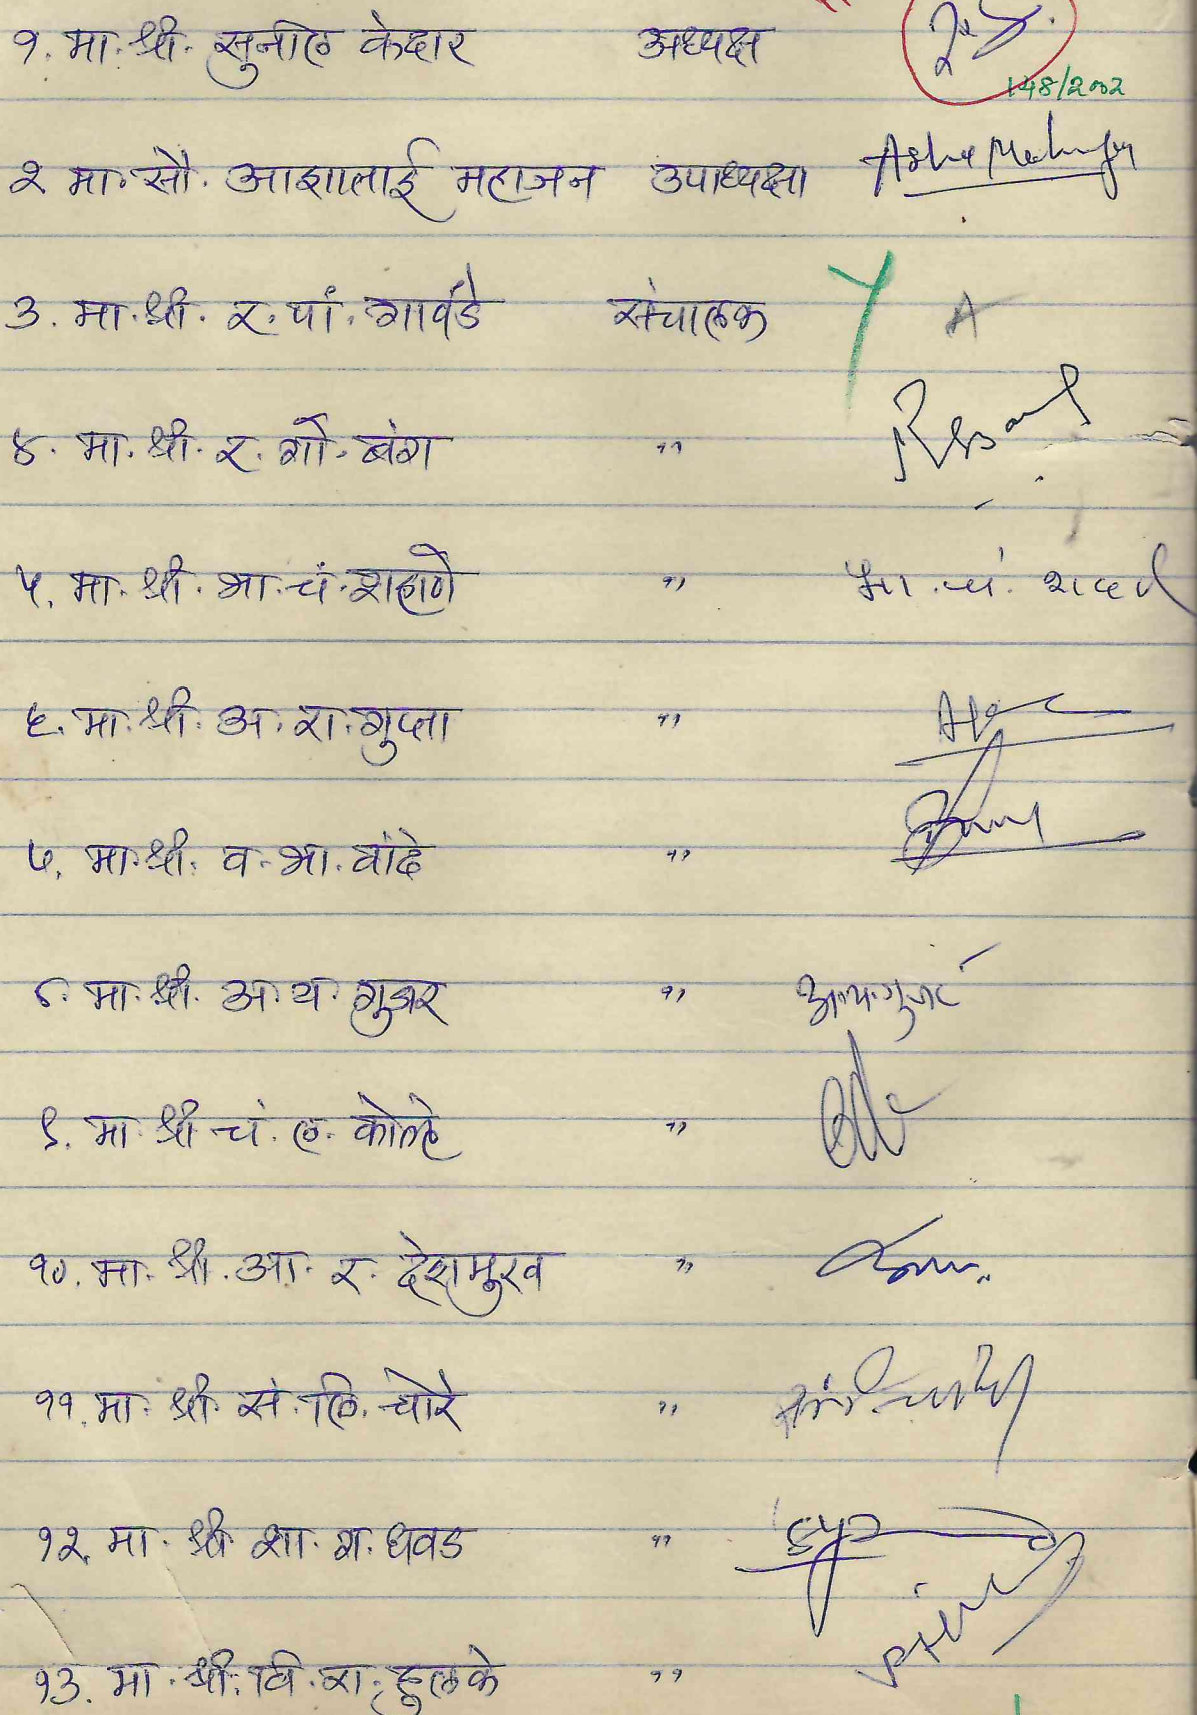 १. मा. श्री. सुनील केदार अध्यक्ष
148/2002
२ मा. सौ. आशाताई महाजन उपाध्यक्षा Asha Mahajan
3. मा. श्री. र. पां. गावंडे संचालक A
४. मा. श्री. र. गो. बंग "
५. मा. श्री. भा. चं. शहाणे " भा. चं. शहाणे
६. मा. श्री. अ. रा. गुप्ता "
७. मा. श्री. व. भा. वांदे "
८. मा. श्री. अ. य. गुजर " अ. य. गुजर
९. मा. श्री चं. ल. कोल्हे "
१०. मा. श्री. आ. र. देशमुख "
११. मा. श्री. सं. लि. चोरे "
१२. मा. श्री शा. ग. धवड "
१3. मा. श्री. वि. रा. हुलके "